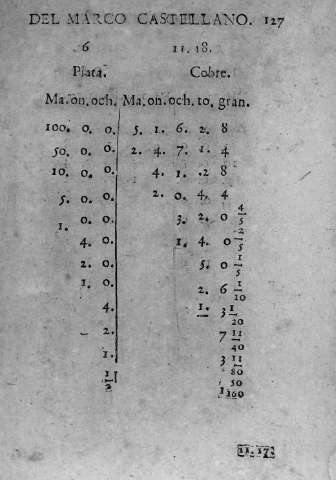 DEL MARCO CASTELLANO. 127
6 11. 18.
Plata. Cobre.
Ma. on. och. Ma. on. och. to. gran.
100. 0. 0. 5. 1. 6. 2. 8
50. 0. 0. 2. 4. 7. 1. 4
10. 0. 0. 4. 1. .2 8
5. 0. 0. 2. 0. 4. 4
1. 0. 0. 3. 2. 0 4/5
4. 0. 1. 4. 0 2/5
2. 0. 5. 0 1/5
1. 0. 2. 6 1/10
4. 1. 3 1/20
2. 7 11/40
1. 3 11/80
1/2 1 50/160
11. 17.